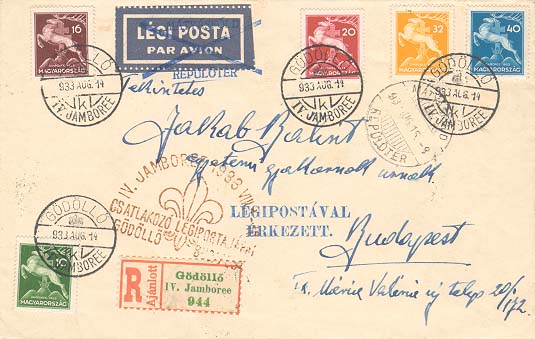 16
MAGYARORSZÁG
LÉGI POSTA
PAR AVION
REPÜLŐTÉR
20
MAGYARORSZÁG
32
MAGYARORSZÁG
40
MAGYARORSZÁG
GÖDÖLLŐ
933 AUG. 14
IV. JAMBOREE
GÖDÖLLŐ
933 AUG. 14
IV. JAMBOREE
GÖDÖLLŐ
933 AUG. 14
IV. JAMBOREE
REPÜLŐTÉR
Tekintetes
Jakab Bálint
egyetemi gyakornok úrnak
IV. JAMBOREE 1933 VIII.
CSATLAKOZÓ LÉGIPOSTA JÁRAT
GÖDÖLLŐ
LÉGIPOSTÁVAL
ÉRKEZETT.
Budapest
Mária Valéria új telep 20/6
172.
GÖDÖLLŐ
933 AUG. 14
IV. JAMBOREE
10
MAGYARORSZÁG
R
Ajánlott
Gödöllő
IV. Jamboree
944